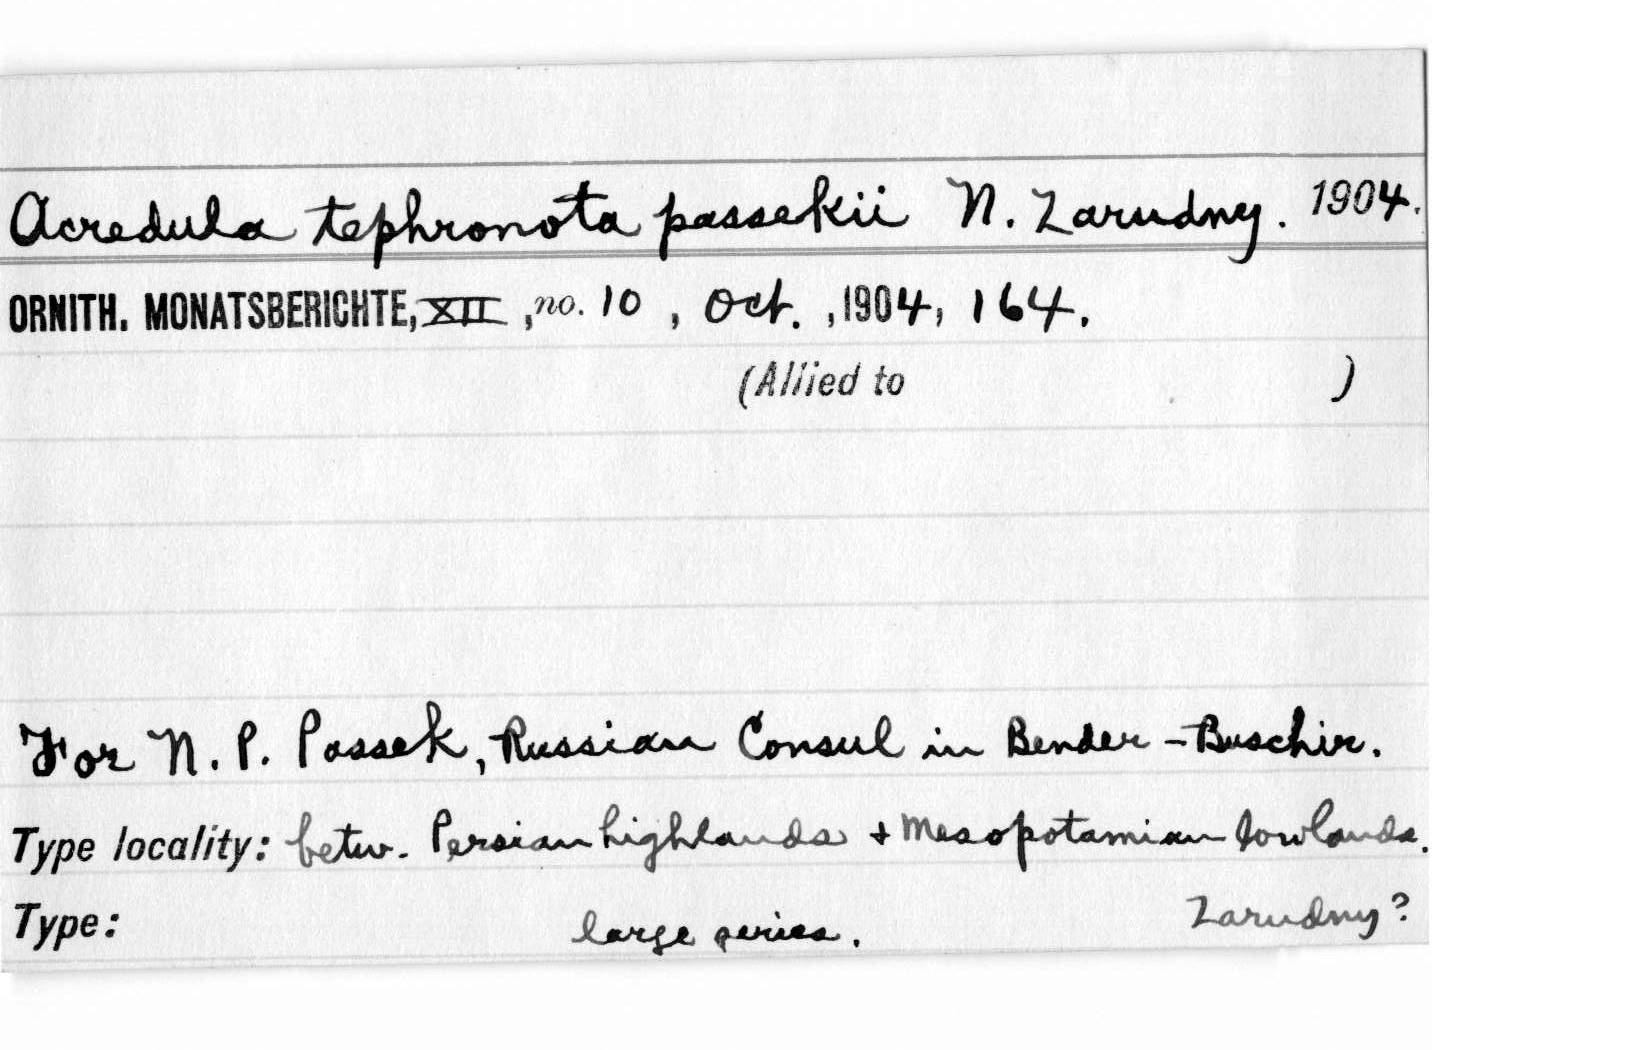 Acredula tephronota passekii N. Zarudny. 1904.
ORNITH. MONATSBERICHTE, XII , no. 10 , Oct. , 1904, 164.
(Allied to )
For N. P. Passek, Russian Consul in Bender-Buschir.
Type locality: betw. Persian highlands + Mesopotamian lowlands.
Type: large series. Zarudny?